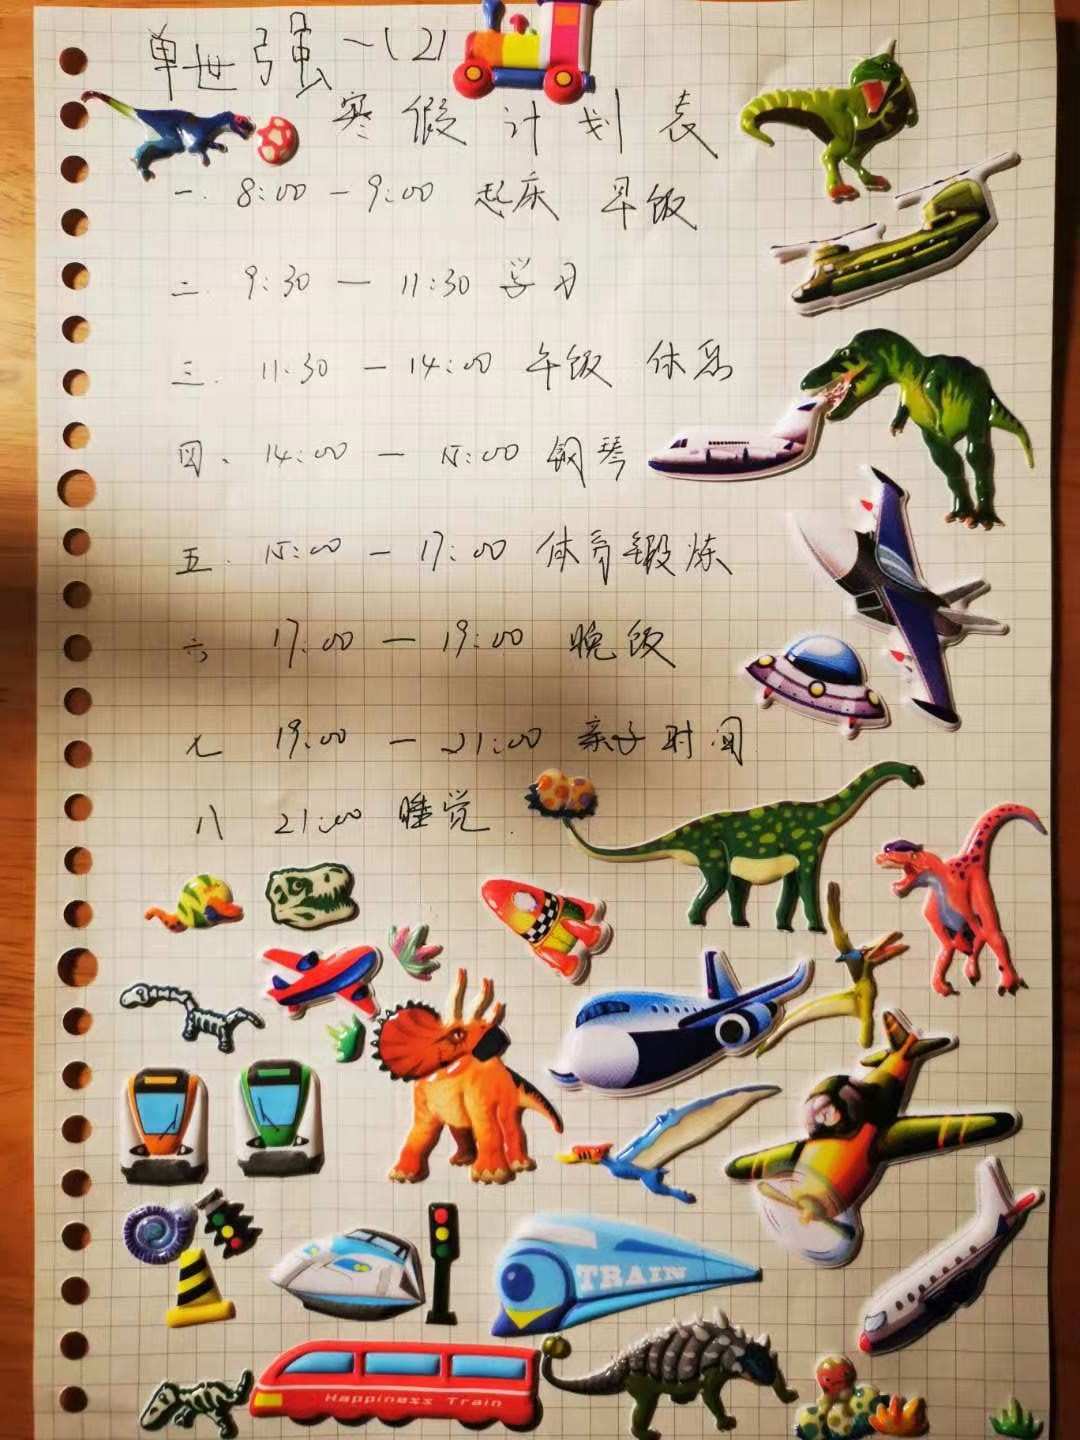 单世强 一(2)
寒假计划表
一. 8:00 - 9:00 起床 早饭
二. 9:30 - 11:30 学习
三. 11:30 - 14:00 午饭 休息
四、14:00 - 15:00 钢琴
五. 15:00 - 17:00 体育锻炼
六 17:00 - 19:00 晚饭
七 19:00 - 21:00 亲子时间
八 21:00 睡觉.
TRAIN
Happiness Train